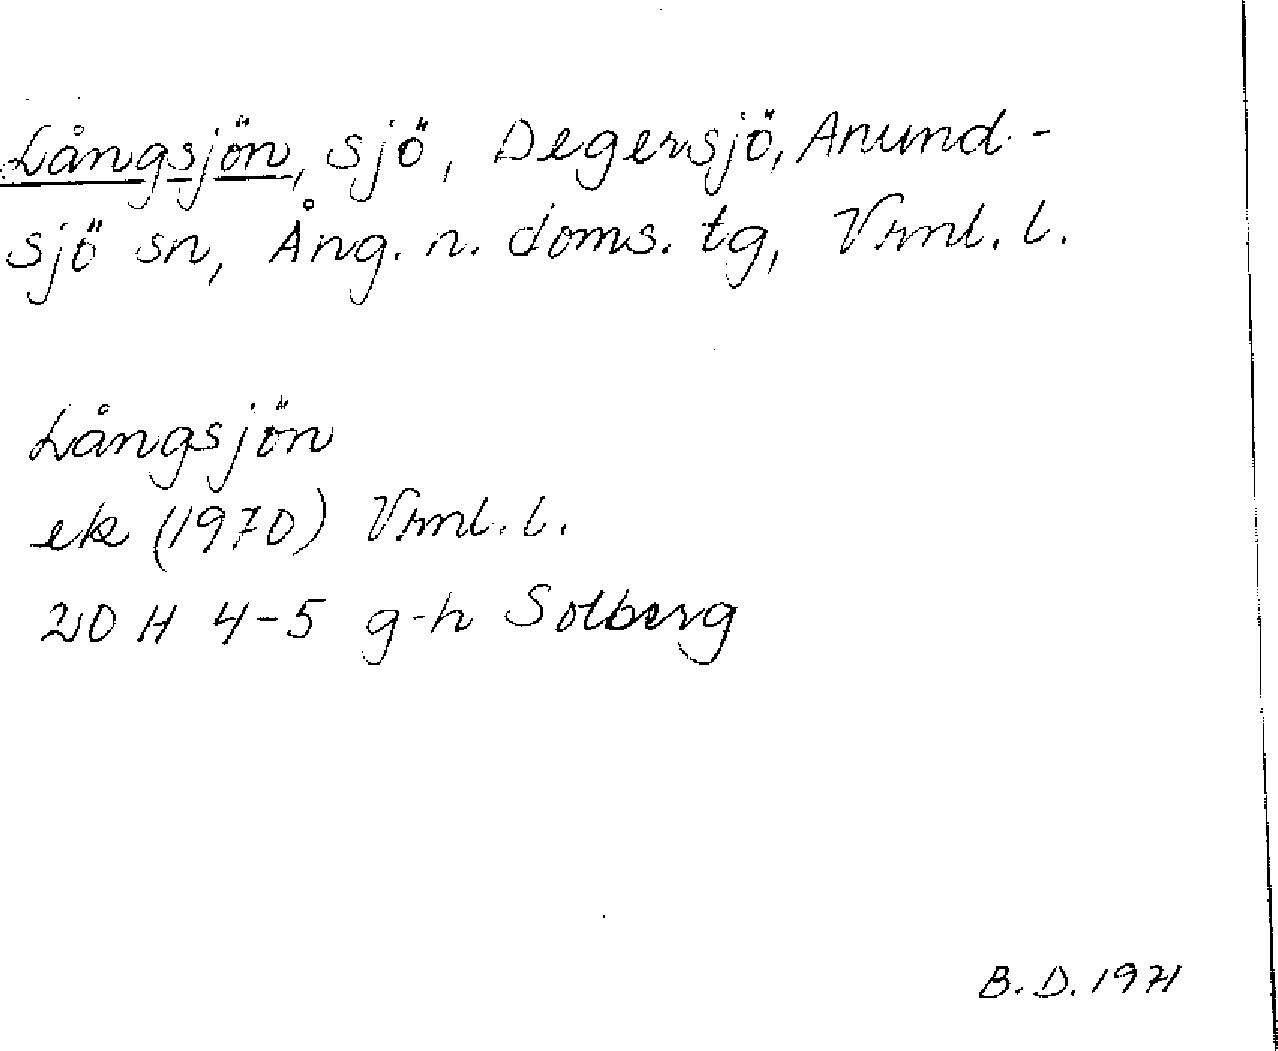 Långsjön, sjö, Degersjö, Anund-
sjö sn, Ång. n. doms. tg, Vrml. l.
Långsjön
ek (1970) Vrml. l.
20 H 4-5 g-h Solberg
B. D. 1971